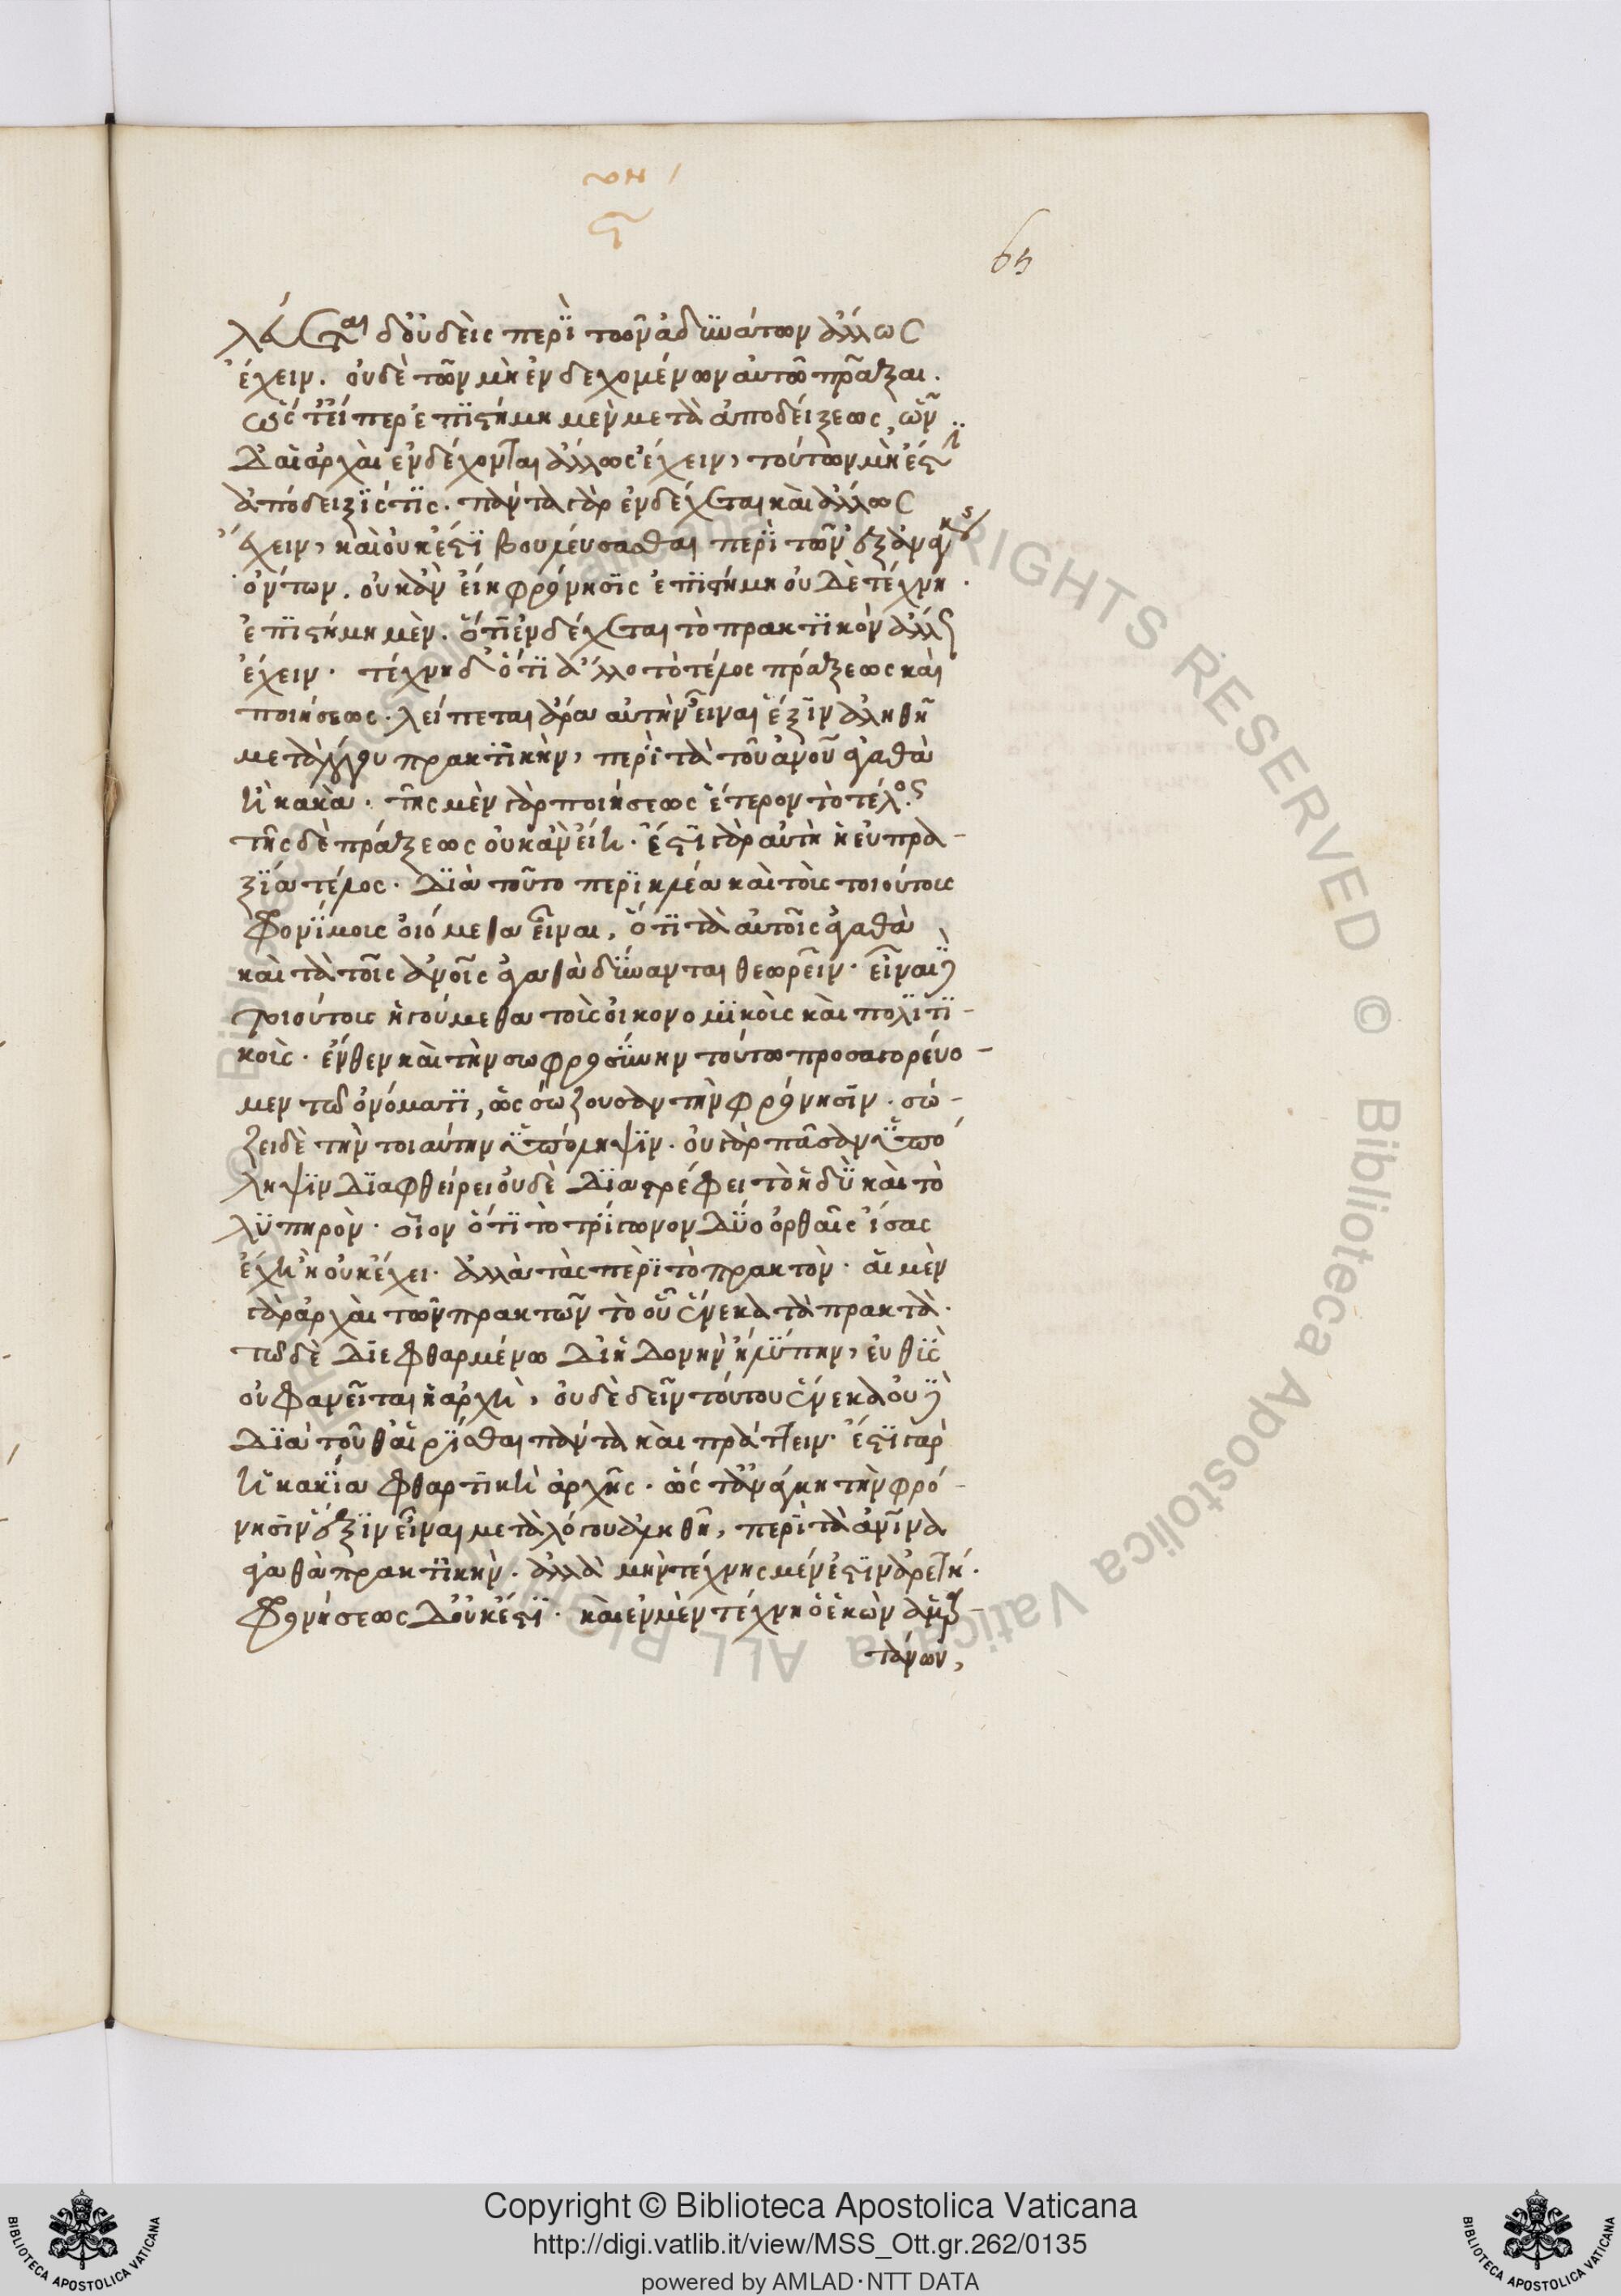 65
λεύεται δ' οὐδεὶς περὶ τῶν ἀδυνάτων ἄλλως
ἔχειν. οὐδὲ τῶν μὴ ἐνδεχομένων αὐτῷ πρᾶξαι.
ὥστ' εἴπερ ἐπιστήμη μὲν μετὰ ἀποδείξεως, ὧν
δ' αἱ ἀρχαὶ ἐνδέχονται ἄλλως ἔχειν, τούτων μὴ ἔστι
ἀπόδειξίς τις. πάντα γὰρ ἐνδέχεται καὶ ἄλλως
ἔχειν, καὶ οὐκ ἔστι βουλεύσασθαι περὶ τῶν ἐξ ἀνάγκης
ὄντων. οὐκ ἂν εἴη φρόνησις ἐπιστήμη οὐδὲ τέχνη.
ἐπιστήμη μὲν. ὅτι ἐνδέχεται τὸ πρακτικὸν ἄλλως
ἔχειν. τέχνη δ' ὅτι ἄλλο τὸ τέλος πράξεως καὶ
ποιήσεως. λείπεται ἄρα αὐτὴν εἶναι ἕξιν ἀληθῆ
μετὰ λόγου πρακτικὴν, περὶ τὰ τοῦ ἀνοῦ ἀγαθὰ
ἢ κακὰ. τῆς μὲν γὰρ ποιήσεως ἕτερον τὸ τέλος.
τῆς δὲ πράξεως οὐκ ἂν εἴη. ἔστι γὰρ αὐτὴ ἡ εὐπρα-
ξία τέλος. διὰ τοῦτο περικλέα καὶ τοὺς τοιούτους
φρονίμους οἰόμεθα εἶναι, ὅτι τὰ αὑτοῖς ἀγαθὰ
καὶ τὰ τοῖς ἀνοῖς ἀγαθὰ δύνανται θεωρεῖν. εἶναι δὲ
τοιούτους ἡγούμεθα τοὺς οἰκονομικοὺς καὶ πολιτι-
κοὺς. ἔνθεν καὶ τὴν σωφροσύνην τούτῳ προσαγορεύο-
μεν τῷ ὀνόματι, ὡς σώζουσαν τὴν φρόνησιν. σώ-
ζει δὲ τὴν τοιαύτην ὑπόληψιν. οὐ γὰρ πᾶσαν ὑπό
ληψιν διαφθείρει οὐδὲ διαστρέφει τὸ ἡδὺ καὶ τὸ
λυπηρὸν. οἷον ὅτι τὸ τρίγωνον δύο ὀρθαῖς ἴσας
ἔχει ἢ οὐκ ἔχει. ἀλλὰ τὰς περὶ τὸ πρακτὸν. αἱ μὲν
γὰρ ἀρχαὶ τῶν πρακτῶν τὸ οὗ ἕνεκα τὰ πρακτὰ.
τῷ δὲ διεφθαρμένῳ δι' ἡδονὴν ἢ λύπην, εὐθὺς
οὐ φανεῖται ἡ ἀρχὴ, οὐδὲ δεῖν τούτου ἕνεκα οὐδὲ
διὰ τοῦθ' αἱρεῖσθαι πάντα καὶ πράττειν. ἔστι γὰρ
ἡ κακία φθαρτικὴ ἀρχῆς. ὥστ' ἀνάγκη τὴν φρό-
νησιν ἕξιν εἶναι μετὰ λόγου ἀληθῆ, περὶ τὰ ἀνινα
ἀγαθὰ πρακτικὴν. ἀλλὰ μὴν τέχνης μέν ἐστιν ἀρετή.
φρονήσεως δ' οὐκ ἔστι. καὶ ἐν μὲν τέχνη ὁ ἑκὼν ἁμαρ-
τάνων,
Copyright © Biblioteca Apostolica Vaticana
http://digi.vatlib.it/view/MSS_Ott.gr.262/0135
powered by AMLAD·NTT DATA
BIBLIOTECA APOSTOLICA VATICANA
BIBLIOTECA APOSTOLICA VATICANA
© Biblioteca Apostolica Vaticana ALL RIGHTS RESERVED